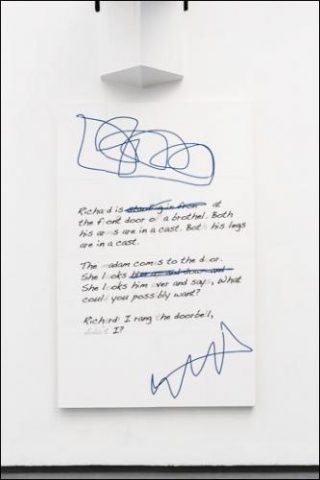 Richard is standing in front at
the front door of a brothel. Both
his arms are in a cast. Both his legs
are in a cast.
The madam comes to the door.
She looks him up and down and
She looks him over and says, What
could you possibly want?
Richard: I rang the doorbell,
didn't I?